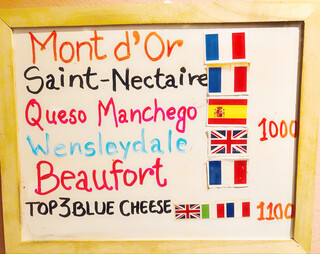 Mont d'Or
Saint-Nectaire
Queso Manchego
Wensleydale 1000
Beaufort
TOP3BLUE CHEESE 1100